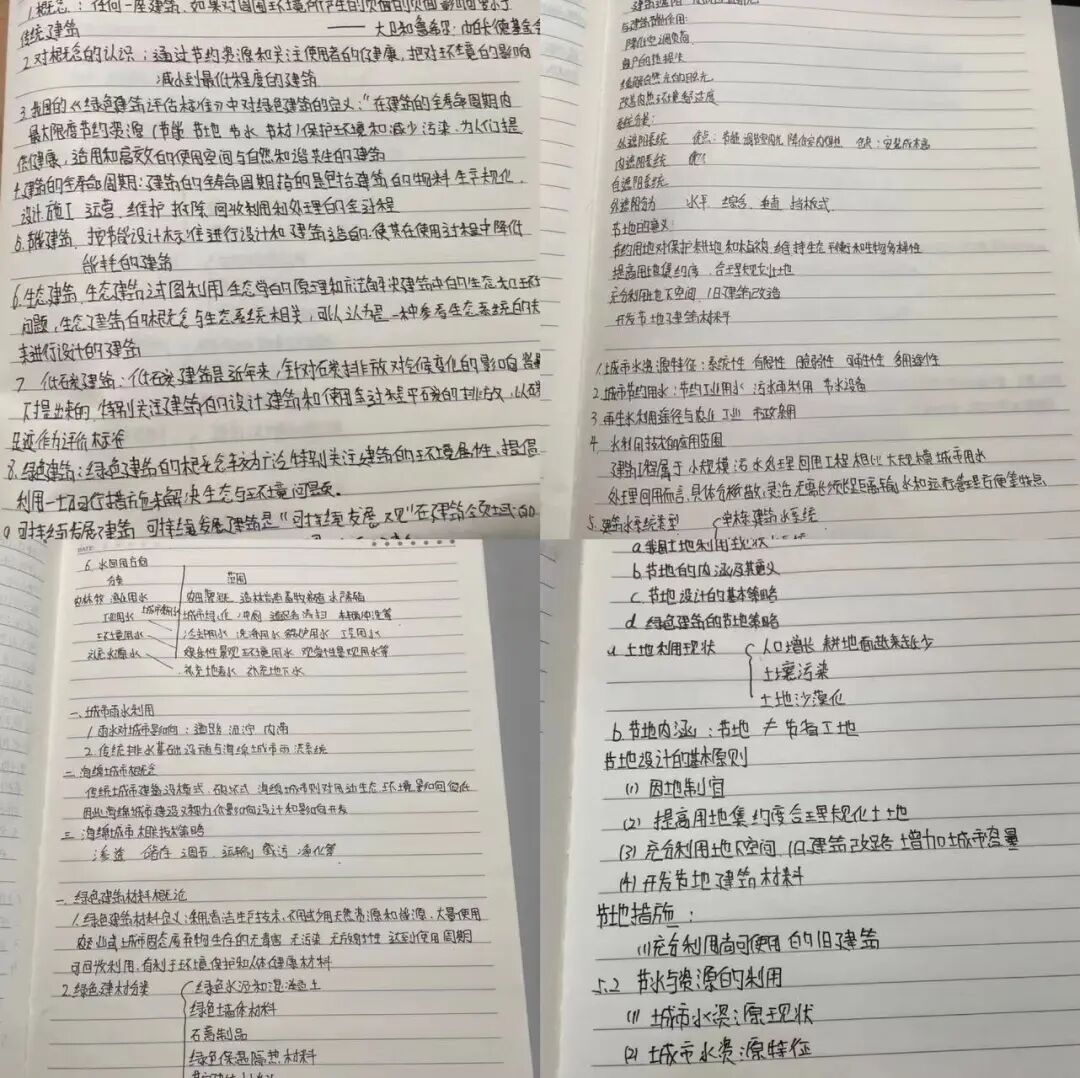 1.概念：任何一座建筑，如果对周围环境所产生的负面影响要小于
传统建筑 —— 大卫和鲁希尔·帕卡德基金会
2.对概念的认识：通过节约资源和关注使用者的健康，把对环境的影响
减小到最低程度的建筑
3.我国的《绿色建筑评估标准》中对绿色建筑的定义："在建筑的全寿命周期内
最大限度节约资源(节能 节地 节水 节材)保护环境和减少污染，为人们提
供健康，适用和高效的使用空间与自然和谐共生的建筑
建筑的全寿命周期：建筑的全寿命周期指的是包括建筑的物料生产规化，
设计施工 运营 维护 拆除 回收利用和处理的全过程
5.节能建筑，按节能设计标准进行设计和建筑造的，使其在使用过程中降低
能耗的建筑
6.生态建筑，生态建筑试图利用生态学的原理和方法解决建筑中的生态和环境
问题，生态建筑的概念与生态系统相关，可以认为是一种参考生态系统的
来进行设计的建筑
7 低碳建筑：低碳建筑是近年来，针对石炭排放对气候变化的影响
下提出来的，特别关注建筑的设计建筑和使用全过程中碳的排放，以碳
足迹作为评价标准
8.绿色建筑：绿色建筑的概念较为广泛特别关注建筑的环境属性，提倡
利用一切可行措施来解决生态与环境问题。
9 可持续发展建筑 可持续发展建筑是"可持续发展观"在建筑领域的
与建筑的作用：
降低空调负荷
改善室内热环境舒适度
系统分类：
外遮阳系统 优点：节能 调节室内光 降低室内 缺：安装成本高
内遮阳系统
自遮阳系统
外遮阳分为 水平 综合 垂直 挡板式
节地的意义：
节约用地对保护耕地和植被 维持生态平衡和生物多样性
提高用地集约度，合理规划土地
充分利用地下空间，旧建筑改造
开发节地建筑材料
1.城市水资源特征：系统性 有限性 脆弱性 可恢复性 多用途性
2.城市节约用水：节约工业用水 污水再利用 节水设备
3.再生水利用途径与农业 工业 市政杂用
4 水利用技术的应用范围
建筑工程属于小规模污水处理回用工程 相比大规模城市用水
处理回用而言，具体分析分散，灵活，无需长须距离输水和运行管理方便等特点
5.建筑水系统类型 单栋建筑水系统
6.水回用方向
分类 范围
农林牧 渔业用水 农田灌溉 造林育苗畜牧养殖 水产养殖
城市杂用水 城市绿化 冲厕 道路清扫 车辆冲洗等
工业用水 冷却用水 洗涤用水 锅炉用水 工艺用水
环境用水 娱乐性景观环境用水 观赏性景观用水等
补充水源水 补充地表水 补充地下水
一、城市雨水利用
1.雨水对城市影响：道路 泥泞 内涝
2.传统排水基础设施与海绵城市雨洪系统
二 海绵城市概念
传统城市建筑设模式，破坏式 海绵城市则对周边生态环境影响低
因此，海绵城市建设又称为低影响设计和影响开发
三 海绵城市相关技术策略
渗透 储存 调节 运输 截污 净化等
一 绿色建筑材料概论
1.绿色建筑材料定义：采用清洁生产技术，不用或少用天然资源和能源，大量使用
农业或城市固态废弃物生存的无毒害 无污染 无放射性 达到使用周期
可回收利用，有利于环境保护和人体健康材料
2.绿色建材分类 绿色水泥和混凝土
绿色墙体材料
石膏制品
绿色保温隔热材料
a.我国土地利用现状
b.节地的内涵及其意义
c.节地设计的基本策略
d 绿色建筑的节地策略
a 土地利用现状 人口增长 耕地面越来越少
土壤污染
土地沙漠化
b.节地内涵：节地 ≠ 节省工地
节地设计的基本原则
(1) 因地制宜
(2) 提高用地集约度合理规化土地
(3) 充分利用地下空间，旧建筑改路 增加城市容量
(4) 开发节地建筑材料
节地措施：
(1)充分利用尚可使用的旧建筑
5.2 节水与资源的利用
(1) 城市水资源现状
(2) 城市水资源特征